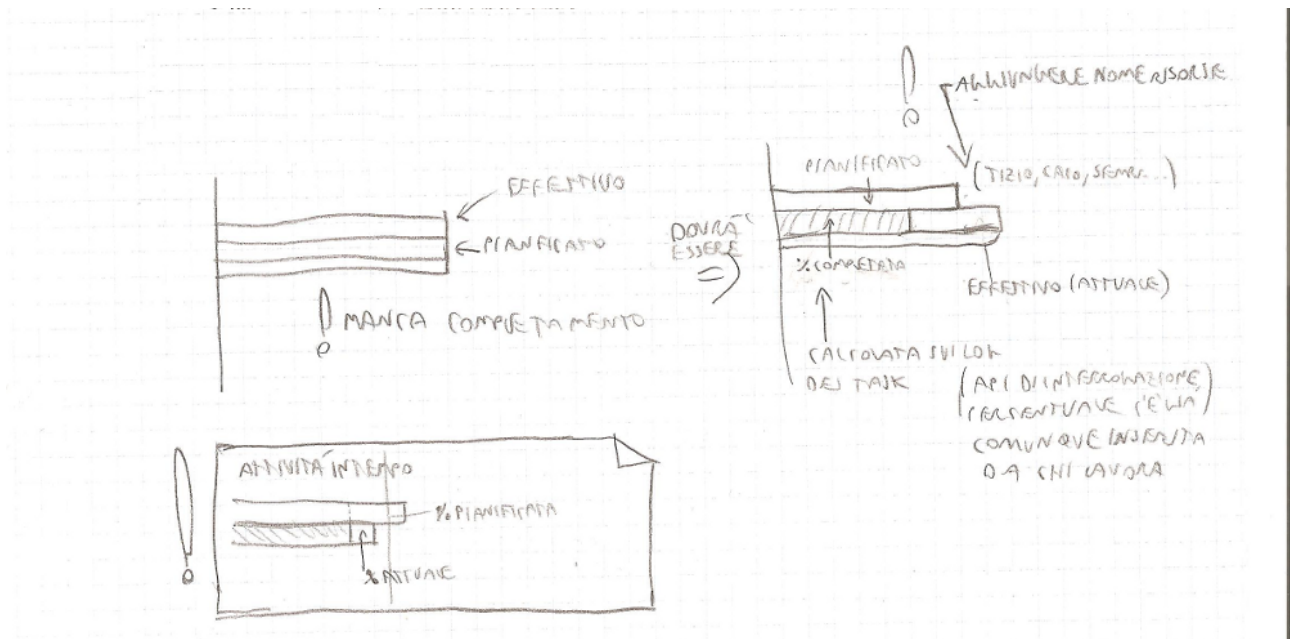 EFFETTIVO
PIANIFICATO
! MANCA COMPLETAMENTO
DOVRA'
ESSERE
=>
! AGGIUNGERE NOME RISORSE
PIANIFICATO
(TIZIO, CAIO, SEMPR...)
% COMPLETATA
EFFETTIVO (ATTUALE)
CALCOLATA SUI LOG
DEI TASK
(API DI INTERROGAZIONE
PERCENTUALE C'È GIA)
COMUNQUE INSERITA
DA CHI LAVORA
!
ATTIVITÀ IN TEMPO
% PIANIFICATA
% ATTUALE